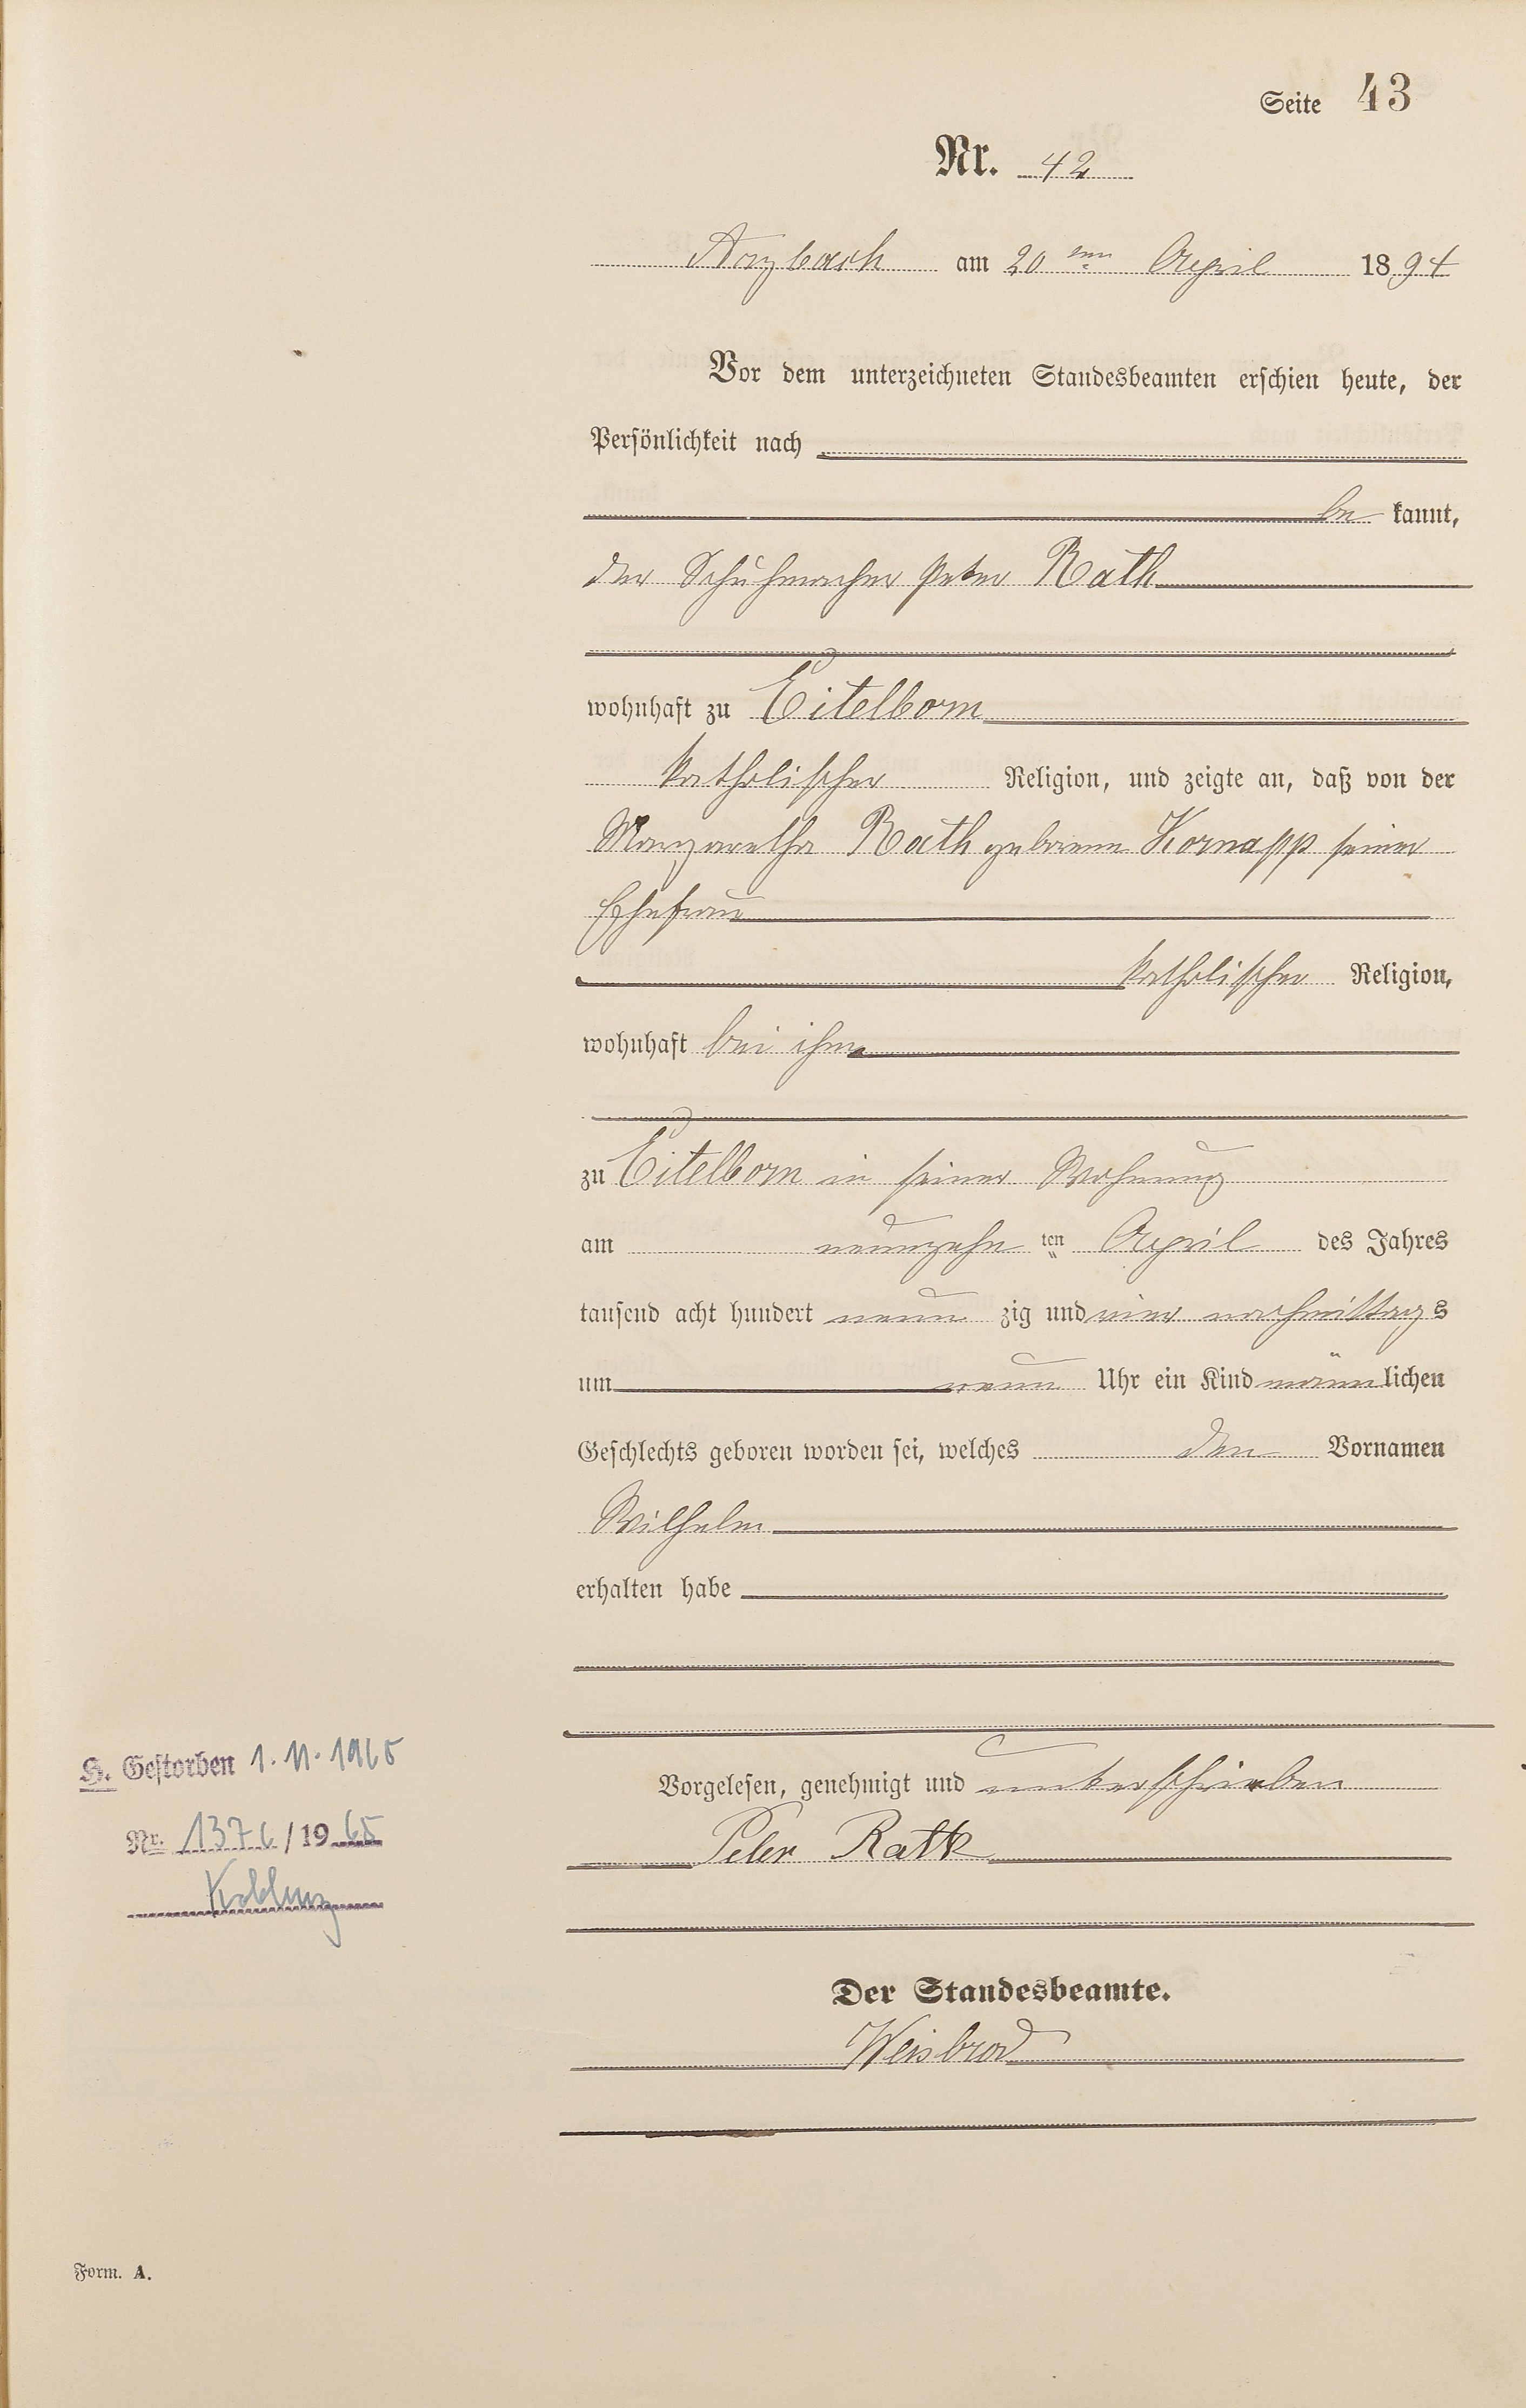 Seite 43
Nr. 42
Arzbach am 20ten April 1894
Vor dem unterzeichneten Standesbeamten erschien heute, der
Persönlichkeit nach
be kannt,
der Schuhmacher Peter Rath
wohnhaft zu Eitelborn
katholischer Religion, und zeigte an, daß von der
Margaretha Rath geborene Kornapp seiner
Ehefrau
katholischer Religion,
wohnhaft bei ihm
zu Eitelborn in seiner Wohnung
am neunzehn ten April des Jahres
tausend acht hundert neun zig und vier nachmittags
um neun Uhr ein Kind männlichen
Geschlechts geboren worden sei, welches den Vornamen
Wilhelm
erhalten habe
Vorgelesen, genehmigt und unterschrieben
Peter Rath
Der Standesbeamte.
Weisbrod
H. Gestorben 1.11.1965
Nr. 1376/1965
Koblenz
Form. A.